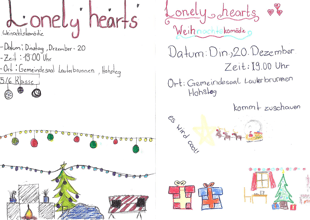 Lonely hearts
Weihnachtskomödie
- Datum: Dinstag, Dezember. 20
- Zeit: 19:00 Uhr
- Ort: Gemeindesaal Lauterbrunnen, Hohsteg
5/6 Klasse
Lonely hearts
Weihnachtskomödie
Datum: Din, 20. Dezember
Zeit: 19.00 Uhr
Ort: Gemeindesaal Lauterbrunnen
Hohsteg
kommt zuschauen
es wird cool!